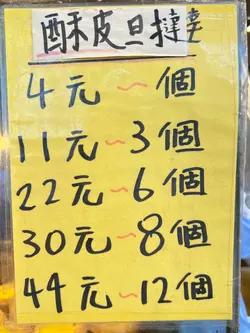 酥皮旦撻
4元~個
11元~3個
22元~6個
30元~8個
44元~12個